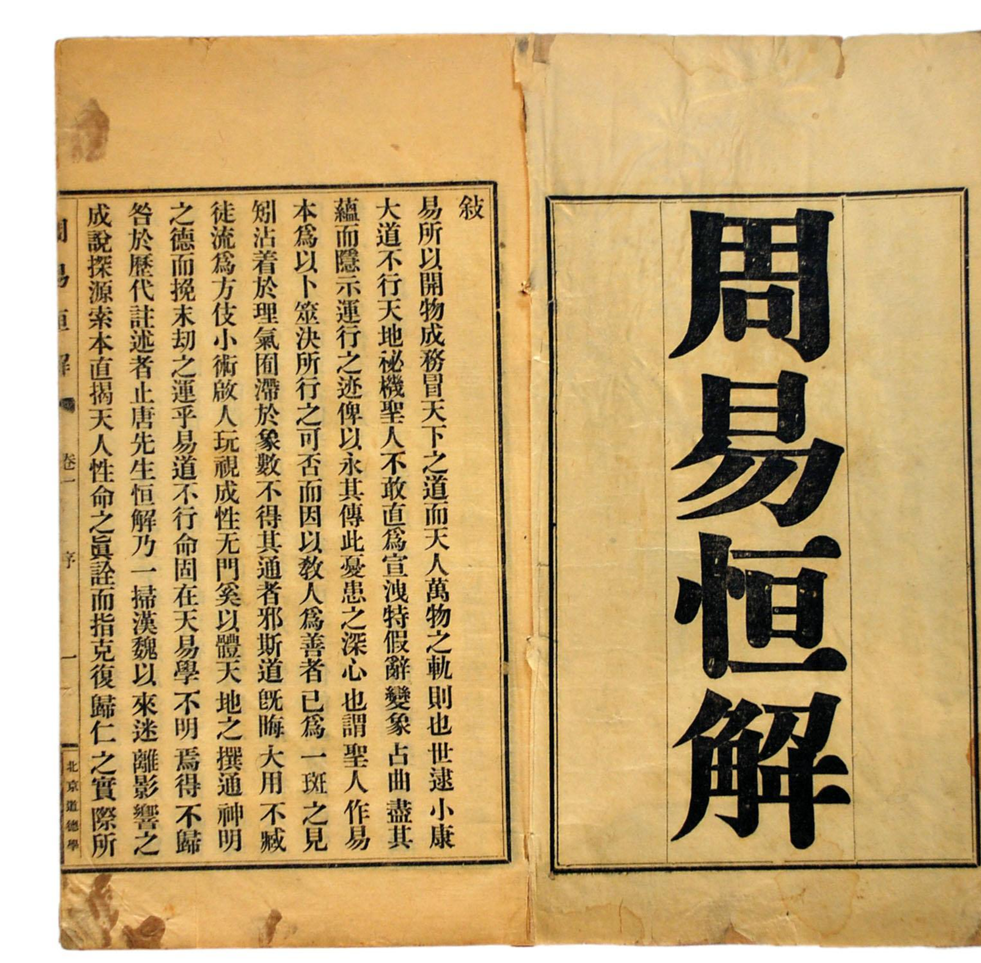 周易恒解
敍
易所以開物成務冒天下之道而天人萬物之軌則也世逮小康
大道不行天地祕機聖人不敢直爲宣洩特假辭變象占曲盡其
蘊而隱示運行之迹俾以永其傳此憂患之深心也謂聖人作易
本爲以卜筮決所行之可否而因以敎人爲善者已爲一斑之見
矧沾着於理氣囿滯於象數不得其通者邪斯道旣晦大用不臧
徒流爲方伎小術啟人玩視成性无門奚以體天地之撰通神明
之德而挽末劫之運乎易道不行命固在天易學不明焉得不歸
咎於歷代註述者止唐先生恒解乃一掃漢魏以來迷離影響之
成說探源索本直揭天人性命之眞詮而指克復歸仁之實際所
周易恒解 卷一 序 一 北京道德學